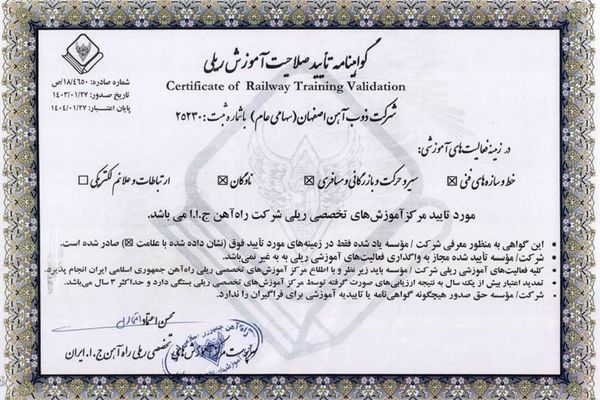 گواهینامه تأیید صلاحیت آموزش ریلی
Certificate of Railway Training Validation
شماره صادره: ۱۸/۴۶۵۰/ص
تاریخ صدور: ۱۴۰۳/۰۱/۲۷
پایان اعتبار: ۱۴۰۴/۰۱/۲۷
شرکت ذوب آهن اصفهان (سهامی عام) باشماره ثبت: ۲۵۲۳۰
در زمینه فعالیت‌های آموزشی:
خط و سازه‌های فنی ☒ سیر و حرکت و بازرگانی و مسافری ☒ ناوگان ☒ ارتباطات و علائم الکتریکی ☐
مورد تایید مرکز آموزش‌های تخصصی ریلی شرکت راه‌آهن ج.ا.ا می باشد.
این گواهی به منظور معرفی شرکت/ مؤسسه یاد شده فقط در زمینه‌های مورد تأیید فوق (نشان داده شده با علامت ☒) صادر شده است.
شرکت/ مؤسسه تأیید شده مجاز به واگذاری فعالیت‌های آموزشی ریلی به به غیر نمی‌باشد.
کلیه فعالیت‌های آموزشی ریلی شرکت/ مؤسسه باید زیر نظر و با اطلاع مرکز آموزش‌های تخصصی ریلی راه‌آهن جمهوری اسلامی ایران انجام پذیرد.
تمدید اعتبار بیش از یک سال به نتیجه ارزیابی‌های صورت گرفته توسط مرکز آموزش‌های تخصصی ریلی بستگی دارد و حداکثر ۳ سال می‌باشد.
شرکت/ مؤسسه حق صدور هیچگونه گواهی‌نامه یا تاییدیه آموزشی برای فراگیران را ندارد.
محسن اعتماد
سرپرست مرکز آموزش‌های تخصصی ریلی راه آهن ج.ا.ایران